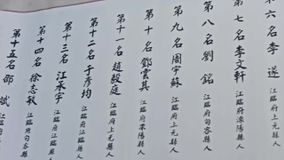 第六名李遂
第七名李文軒 江臨府溧陽縣人
第八名劉銘 江臨府句容縣人
第九名周宇蘇 江臨府上元縣人
第十名鄧雲其 江臨府溧陽縣人
第十一名趙毅庭 江臨府上元縣人
第十二名于彥均 江臨府上元縣人
第十三名江承宇 江臨府江臨縣人
第十四名徐志敏 江臨府句容縣人
第十五名邵斌